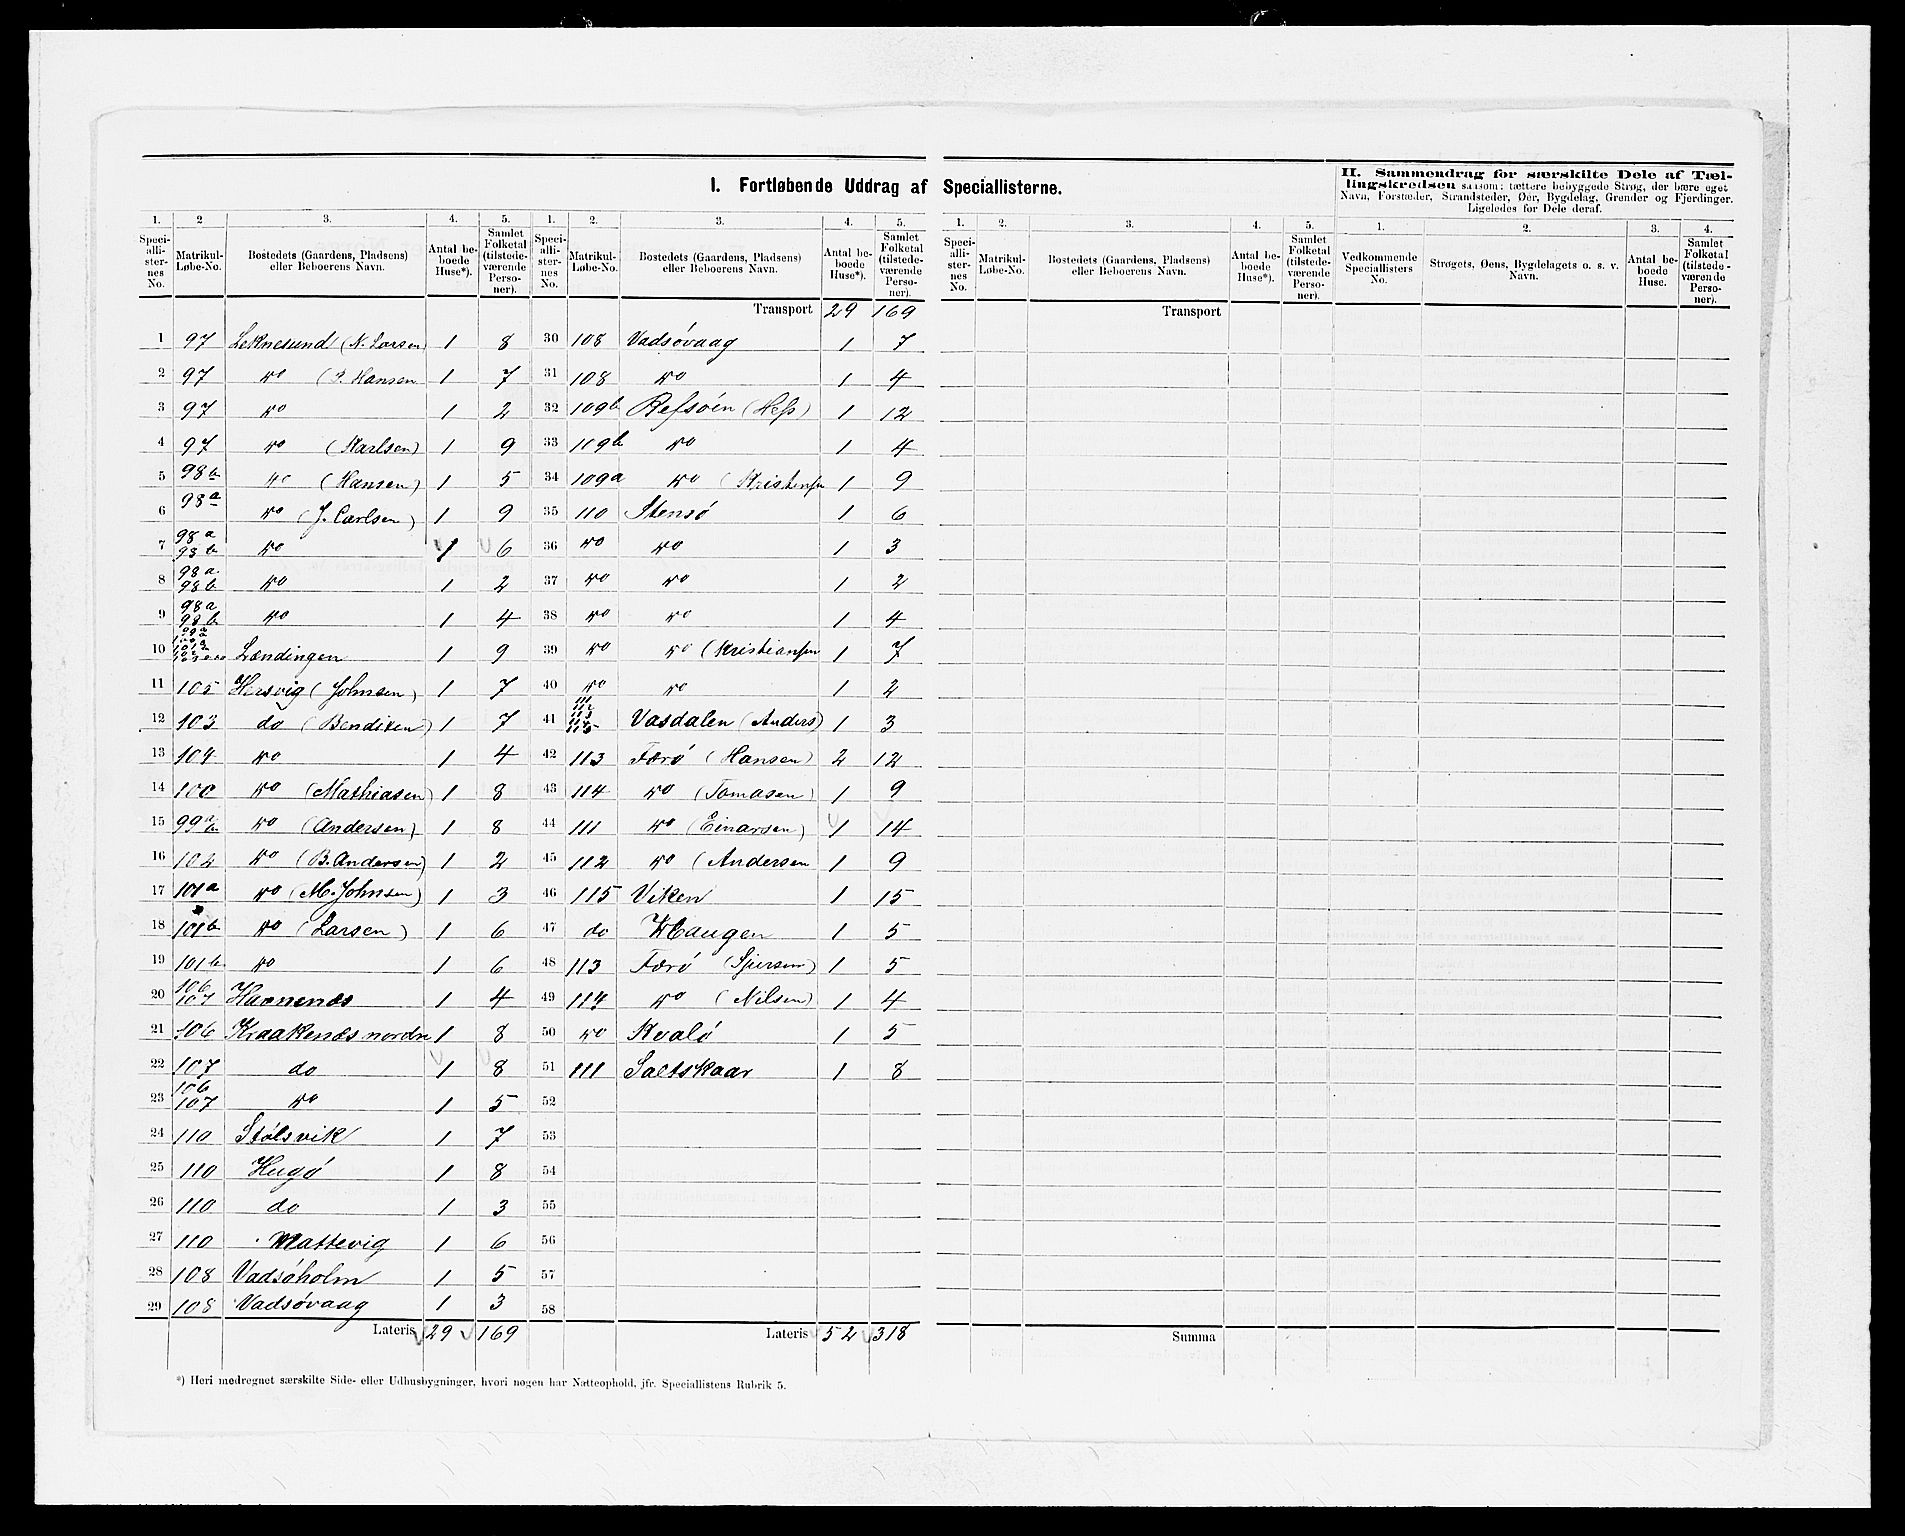 I. Fortløbende Uddrag af Speciallisterne.
II. Sammendrag for særskilte Dele af Tællingskredsen saasom: tættere bebyggede Strøg, der bære eget Navn, Forstæder, Strandsteder, Øer, Bygdelag, Grender og Fjerdinger. Ligeledes for Dele deraf.
1. 2 3. 4. 5. 1. 2. 3. 4. 5. 1. 2. 3. 4. 5. 1. 2. 3. 4.
Speciallisternes No. Matrikul-Løbe-No. Bostedets (Gaardens, Pladsens) eller Beboerens Navn. Antal beboede Huse*). Samlet Folketal (tilstedeværende Personer).
Speciallisternes No. Matrikul-Løbe-No. Bostedets (Gaardens, Pladsens) eller Beboerens Navn. Antal beboede Huse*). Samlet Folketal (tilstedeværende Personer).
Speciallisternes No. Matrikul-Løbe-No. Bostedets (Gaardens, Pladsens) eller Beboerens Navn. Antal beboede Huse*). Samlet Folketal (tilstedeværende Personer).
Vedkommende Speciallisters No. Strøgets, Øens, Bygdelagets o. s. v. Navn. Antal beboede Huse. Samlet Folketal (tilstedeværende Personer).
1 97 Leknesund (N. Larsen) 1 8
2 97 do (P. Hansen 1 7
3 97 do 1 2
4 97 do (Karlsen) 1 9
5 98b do (Hansen) 1 5
6 98a do (J. Carlsen) 1 9
7 98a 98b do 1 6
8 98a 98b do 1 2
9 98a 98b do 1 4
10 Lændingen 1 9
11 105 Hersvig (Johnsen) 1 7
12 103 do (Bendixen) 1 7
13 104 do 1 4
14 100 do (Mathiasen) 1 8
15 99a b do (Andersen) 1 8
16 102 do (B. Andersen) 1 2
17 101a do (M. Johnsen) 1 3
18 101b do (Larsen) 1 6
19 101b do 1 6
20 106 107 Havnenæs 1 4
21 106 Kraakenæs nordre 1 8
22 107 do 1 8
23 106 107 do 1 5
24 110 Stølsvik 1 7
25 110 Hugø 1 8
26 110 do 1 3
27 110 Mattevig 1 6
28 108 Vadsøholm 1 5
29 108 Vadsøvaag 1 3
Lateris 29 169
Transport 29 169
30 108 Vadsøvaag 1 7
31 108 do 1 4
32 109b Refsøen (Hess) 1 12
33 119b do 1 4
34 109a do (Kristensen 1 9
35 110 Stensø 1 6
36 do do 1 3
37 do do 1 2
38 do do 1 4
39 do do (Kristiansen 1 7
40 do do 1 2
41 111 112 113 114 115 Vasdalen (Anders) 1 3
42 113 Færø (Hansen) 2 12
43 114 do (Tomasen) 1 9
44 111 do (Einarsen) 1 14
45 112 do (Andersen 1 9
46 115 Viken 1 15
47 do Haugen 1 5
48 113 Færø (Sjursen) 1 5
49 114 do (Nilsen) 1 4
50 do Kvalø 1 5
51 111 Saltskaar 1 8
52
53
54
55
56
57
58
Lateris 52 318
Transport
Summa
*) Heri medregnet særskilte Side- eller Udhusbygninger, hvori nogen har Natteophold, jfr. Speciallistens Rubrik 5.